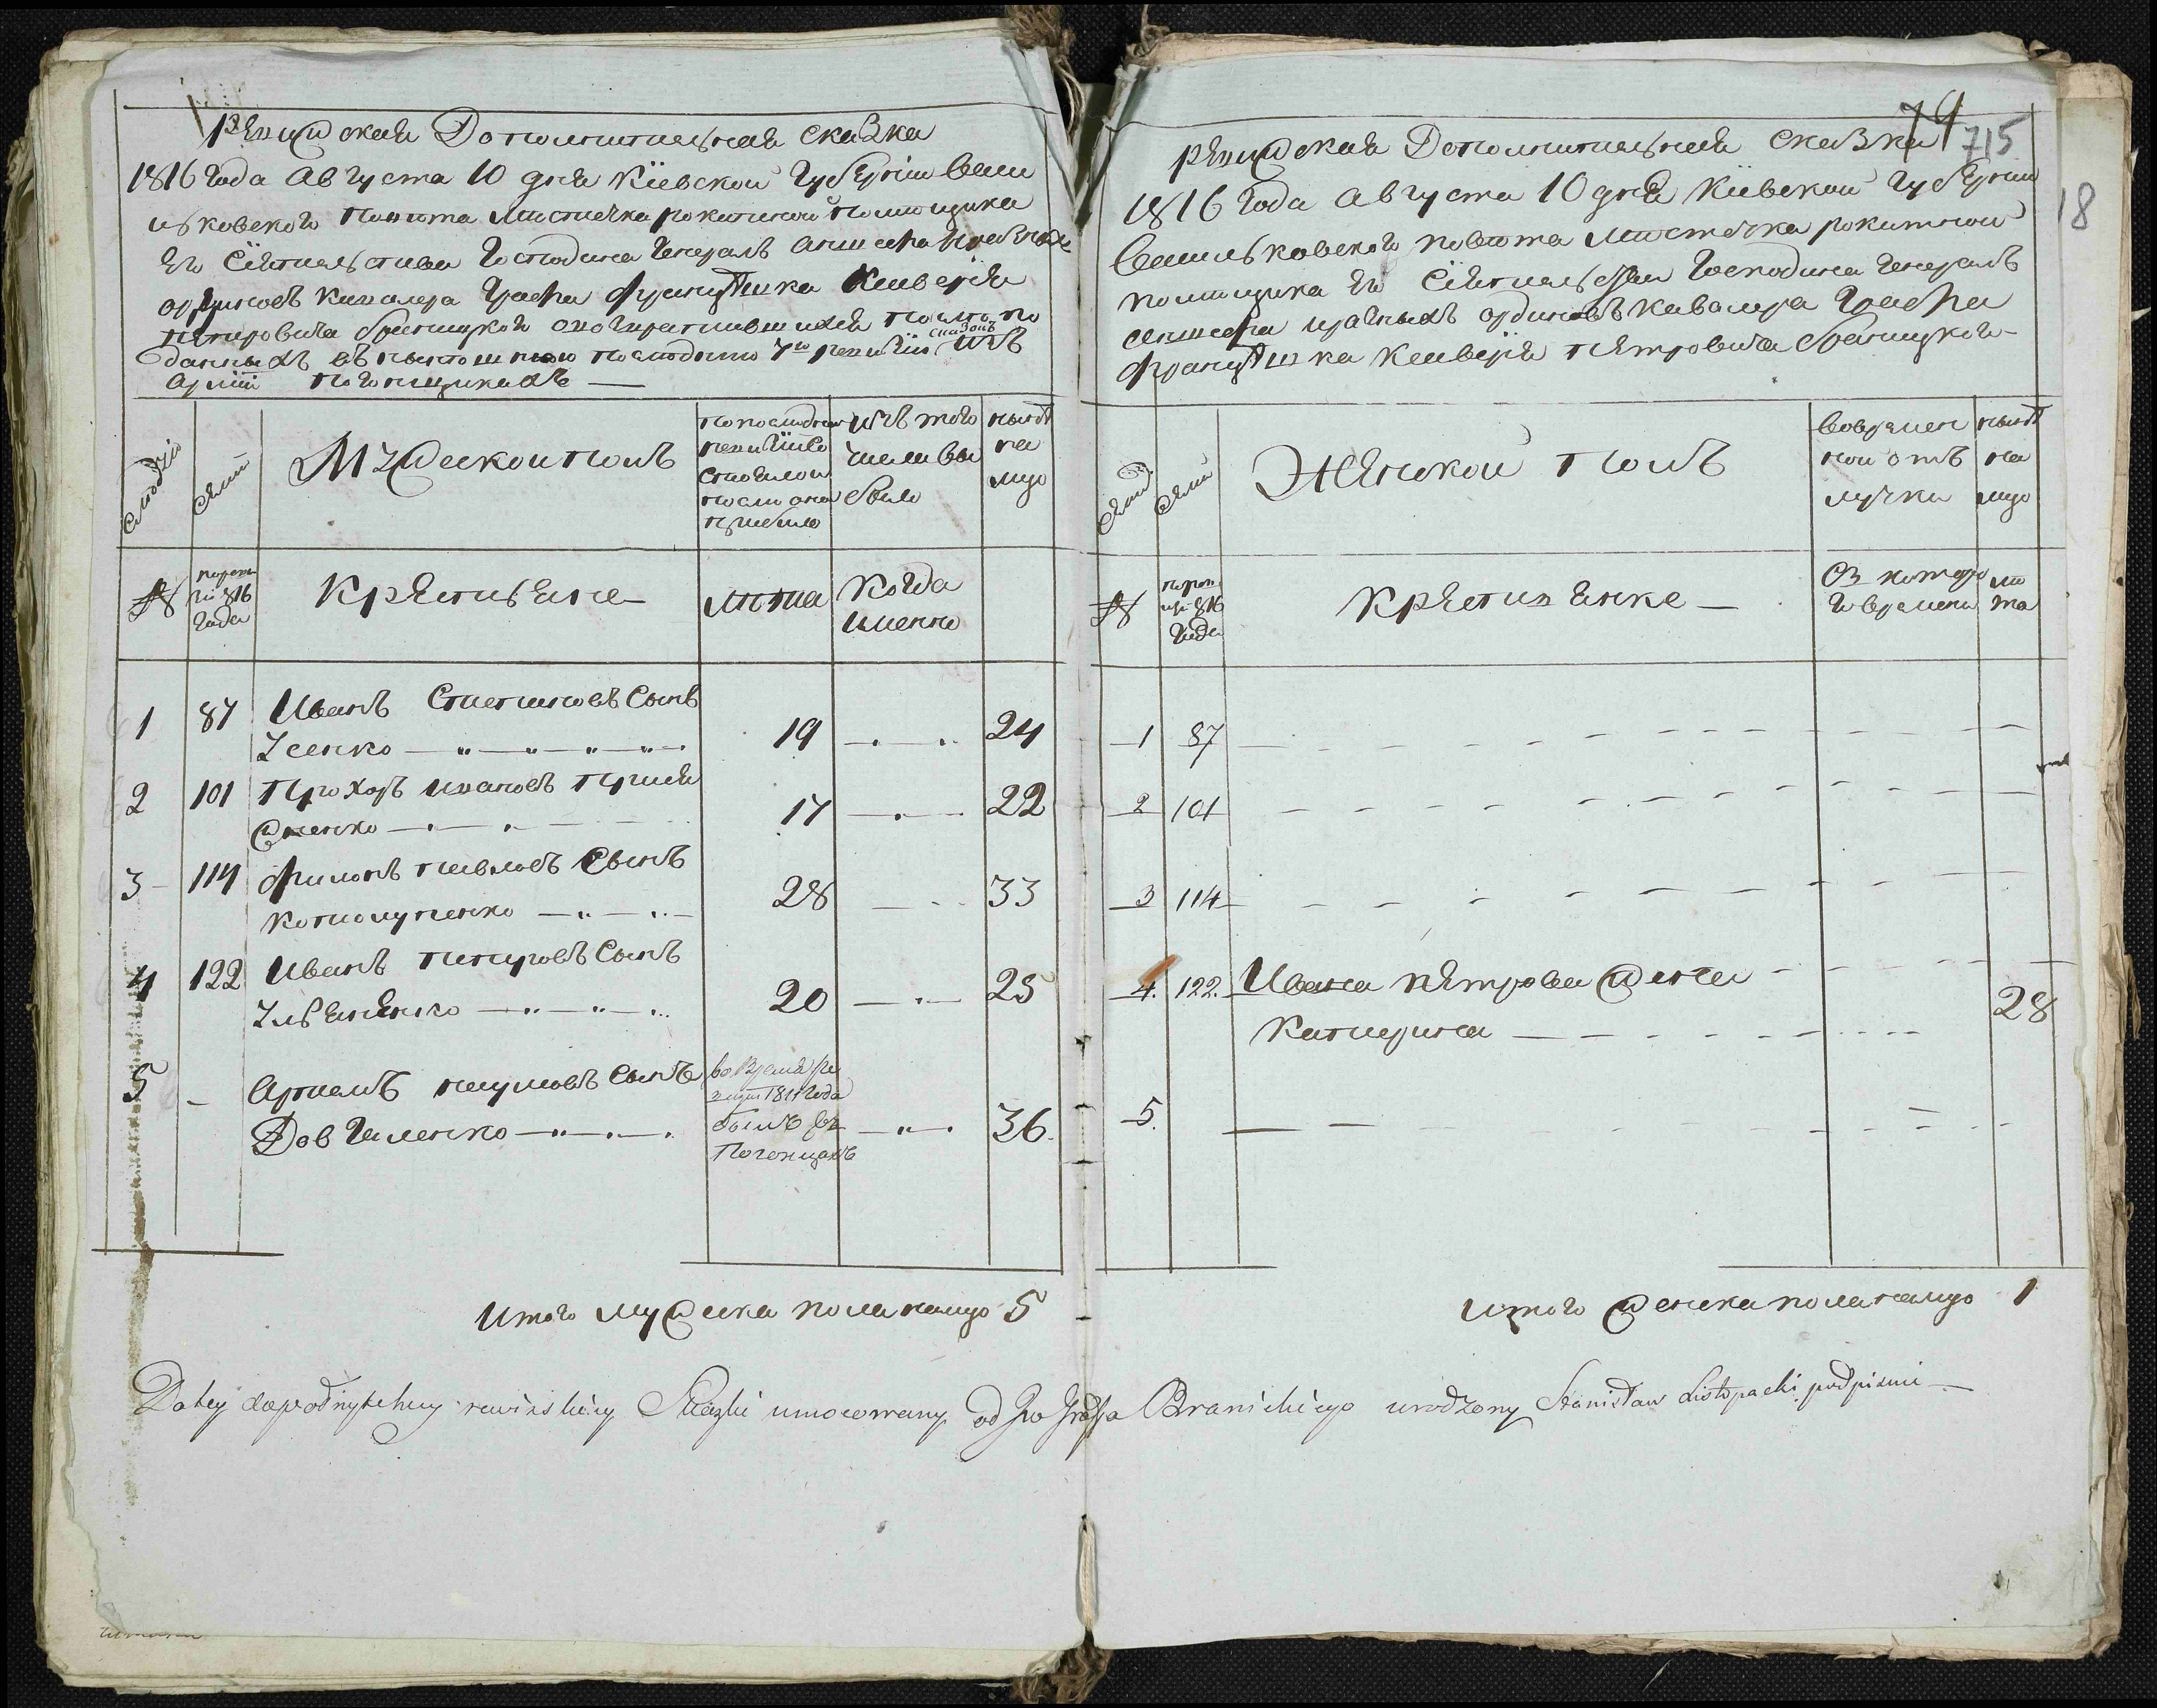 Ревижская Дополнительная сказка
1816 года Августа 10 дня Кіевской Губерніи Васи
льковского Повѣта Мистечка рокитной помѣщика
Его Сіятельства Господина Генералъ Аншефа и разныхъ
ординовъ кавалера Графа Францѣшка Ксаверія
Петровича браницкого о возвратившихся после по
данныхъ въ послѣднюю 7ю ревизію сказокъ изъ
Арміи погонщикахъ —
семой семій
Мужеской полъ
по последней ревизіи состояло и после оной прибыло
изъ того числа выбыло
нынѣ на лицо
№
по ревизіи 816 Года
Крестьяне
лѣта
Когда именно
1 87 Иванъ Степановъ Сынъ
Усенко 19 24
2 101 Прохоръ Ивановъ
17 22
3 114 Филонъ павловъ Сынъ
Котолупенко 28 33
4 122 Иванъ петровъ Сынъ
Ульяненко 20 25
5 – Артемъ наумовъ Сынъ во время ре
визіи 1811 года
Довгаленко былъ въ 36.
Погонцахъ
Итого мужеска пола налицо 5
74
715
18
ревижская Дополнительная сказка
1816 Года Августа 10 дня Кіевской Губерніи
Васильковского повѣта Мистечка рокитной
помѣщика Его Сіятельства Господина Генералъ
аншефа и разныхъ ординовъ Кавалера Графа
Францѣшка Ксаверія Петровича браницкого
семій
Женской полъ
Вовремен
ной отъ
лучки
нынѣ
на
лицо
№
816
Года
Крестьянке —
Съ которо
го времени
лѣ
та
1 87
2 101
3 114
4. 122. Ивана Петрова жена
Катерина 28
5.
Итого женска пола налицо 1
Do tey dopołnytelney rewizskiey Skazki umocowany od Jwo Grafa Branickiego urodzony Stanisław Listopacki podpisuie